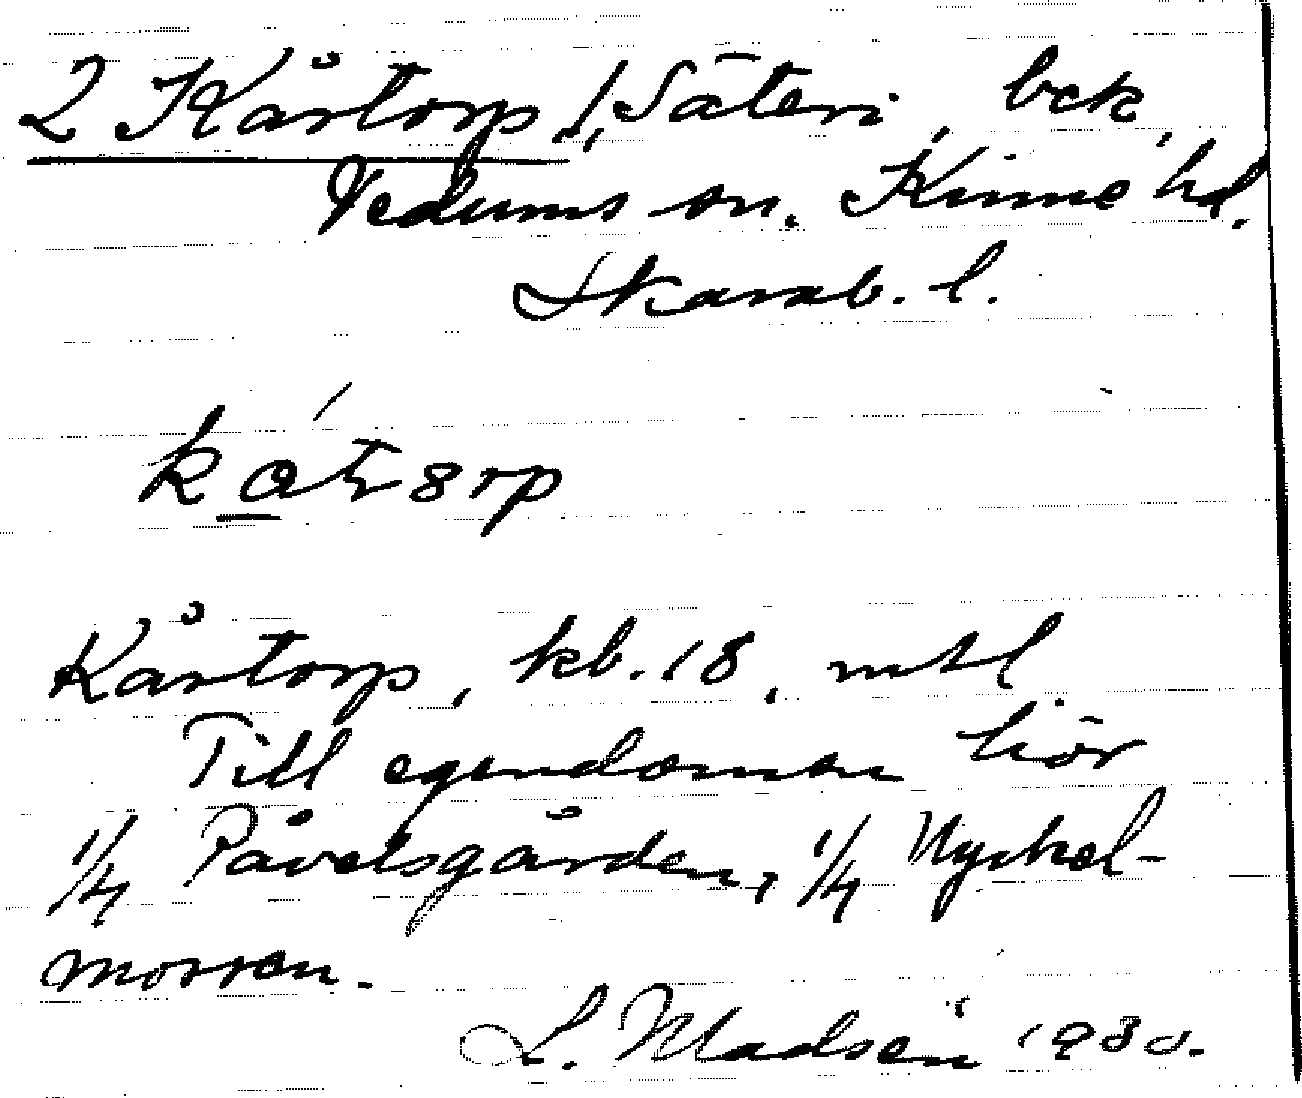 2 Kårtorp, 1, Säteri, bck,
Vedums sn. Kinne hd.
Skarab. l.
Kårtorp, kb. 18, mtl
Till egendomen hör
1/4 Påvelsgården, 1/4 Nyckel-
morren.
L. Madsén 1930.